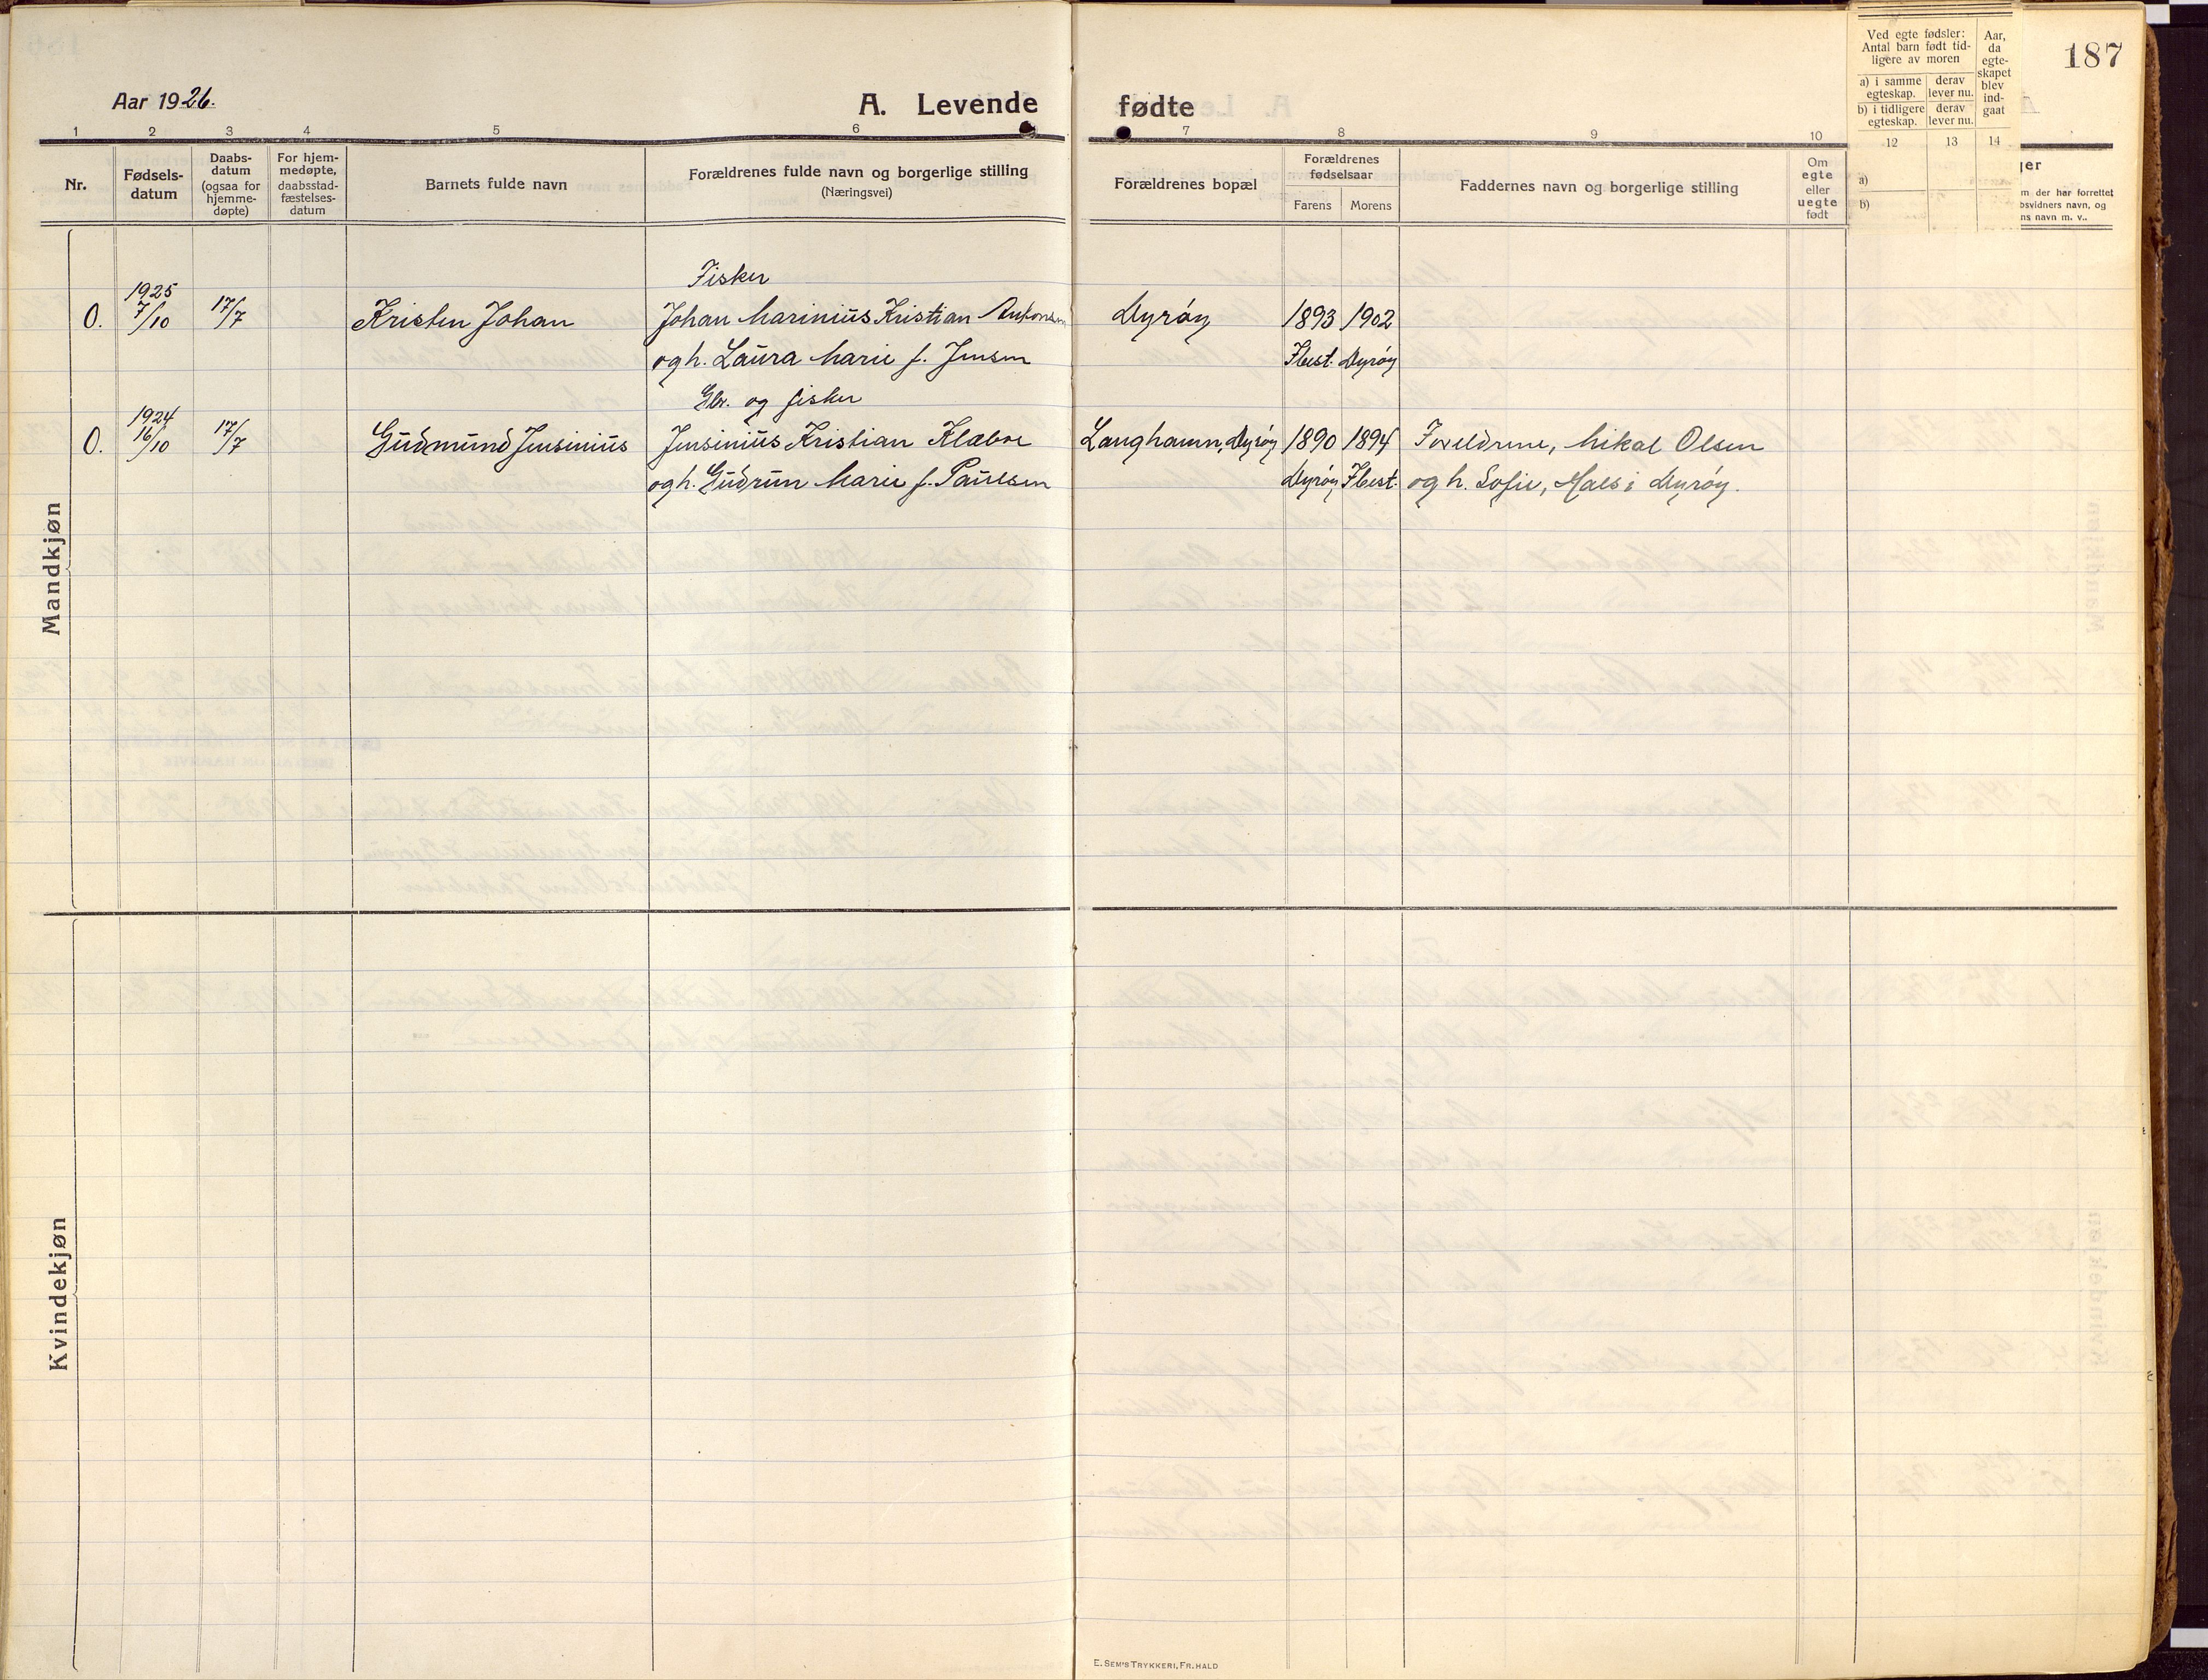 187
Aar 1926.
A. Levende fødte
1 2 3 4 5 6 7 8 9 10 12 13 14
Nr.
Fødsels-
datum
Daabs-
datum
(ogsaa for
hjemme-
døpte)
For hjem-
medøpte,
daabsstad-
fæstelses-
datum
Barnets fulde navn
Forældrenes fulde navn og borgerlige stilling
(Næringsvei)
Forældrenes bopæl
Forældrenes
fødselsaar
Farens Morens
Faddernes navn og borgerlige stilling
Om
egte
eller
uegte
født
Ved egte fødsler:
Antal barn født tid-
ligere av moren
a) i samme
egteskap.
derav
lever nu.
b) i tidligere
egteskap.
derav
lever nu.
Aar,
da
egte-
skapet
blev
ind-
gaat
a)
b)
ger
m der har forrettet
bsvidners navn, og
ns navn m. v..
Mandkjøn
Fisker
1925
0. 7/10 17/7 Kristen Johan Johan Marinius Kristian Antonsen Dyrøy 1893 1902
og h. Laura Marie f. Jensen Ibest. Dyrøy
Gbr. og fisker
1924
0. 16/10 17/7 Gudmund Jensinius Jensinius Kristian Klæboe Langhamn, Dyrøy 1890 1894 Foreldrene, Mikal Olsen
og h. Gudrun Marie f. Paulsen Dyrøy Ibest. og h. Sofie, i Dyrøy.
Kvindekjøn
E. SEM'S TRYKKERI, FR.HALD